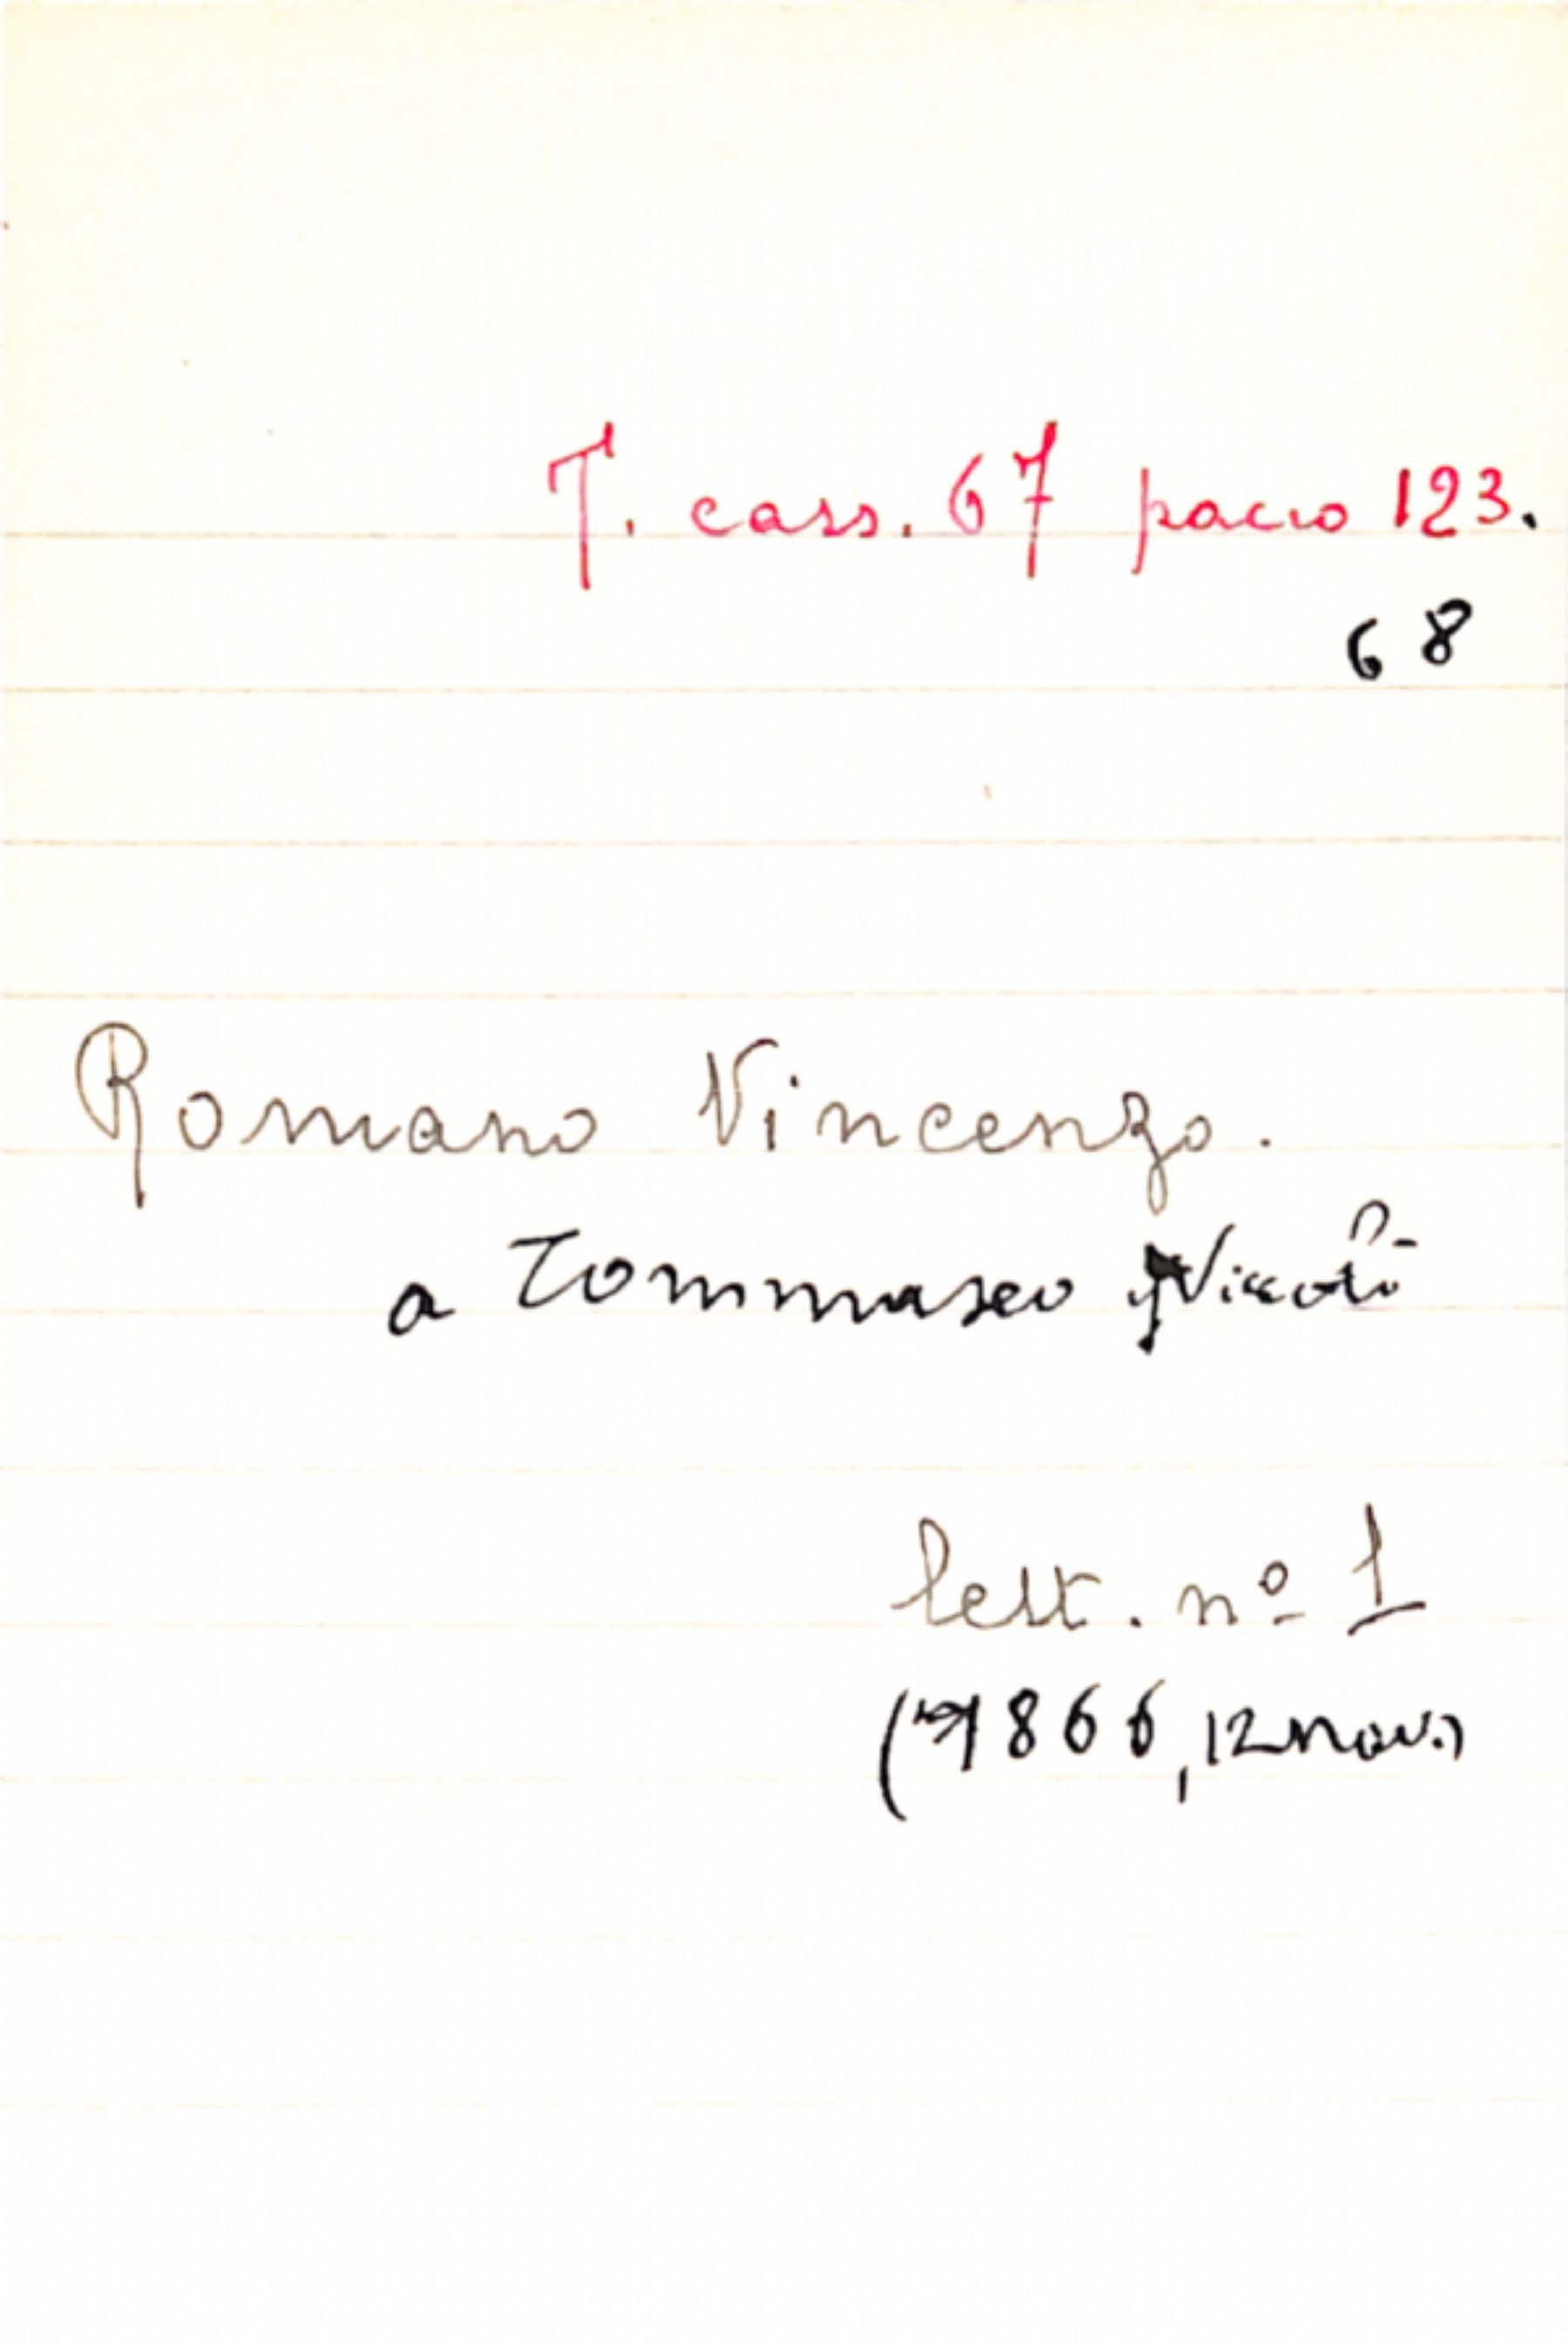 T. cass. 67 pacco 123.
68
Romano Vincenzo.
a Tommaseo Niccolò
lett. nº 1
(1866, 12 nov.)